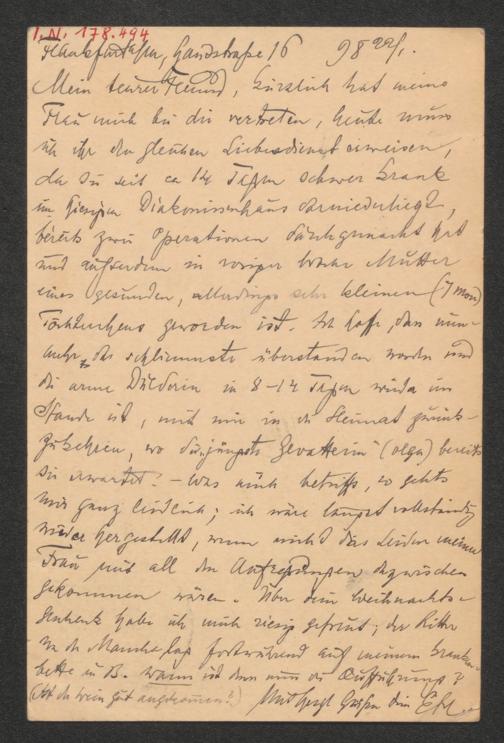 I. N. 178.494
Frankfurt a/M, Gaußstraße 16 98 22/1.
Mein teurer Freund, kürzlich hat meine
Frau mich bei dir vertreten, heute muss
ich ihr den gleichen Liebesdienst erweisen,
da sie seit ca 14 Tagen schwer krank
im hiesigen Diakonissenhaus darniederliegt,
bereits zwei Operationen durchgemacht hat
und außerdem in voriger Woche Mutter
eines gesunden, allerdings sehr kleinen (7 Mon)
Töchterchens geworden ist. Ich hoffe, dass nun-
mehr das schlimmste überstanden worden und
die arme Dulderin in 8-14 Tagen wieder im
Stande ist, mit mir in die Heimat zurück-
zukehren, wo die jüngste Gevatterin (Olga) bereits
sie erwartet. - Was mich betrifft, so geht's
mir ganz leidlich; ich wäre längst vollständig
wieder hergestellt, wenn nicht das Leiden meiner
Frau mit all den Aufregungen dazwischen
gekommen wären. Über dein Weihnachts-
geschenk habe ich mich riesig gefreut; der Ritter
de la Mancha lag fortwährend auf meinem Kranken-
bette in B. Wann ist denn nun die Aufführung?
(Ist der Wein gut angekommen?) Mit herzl Grüßen dein